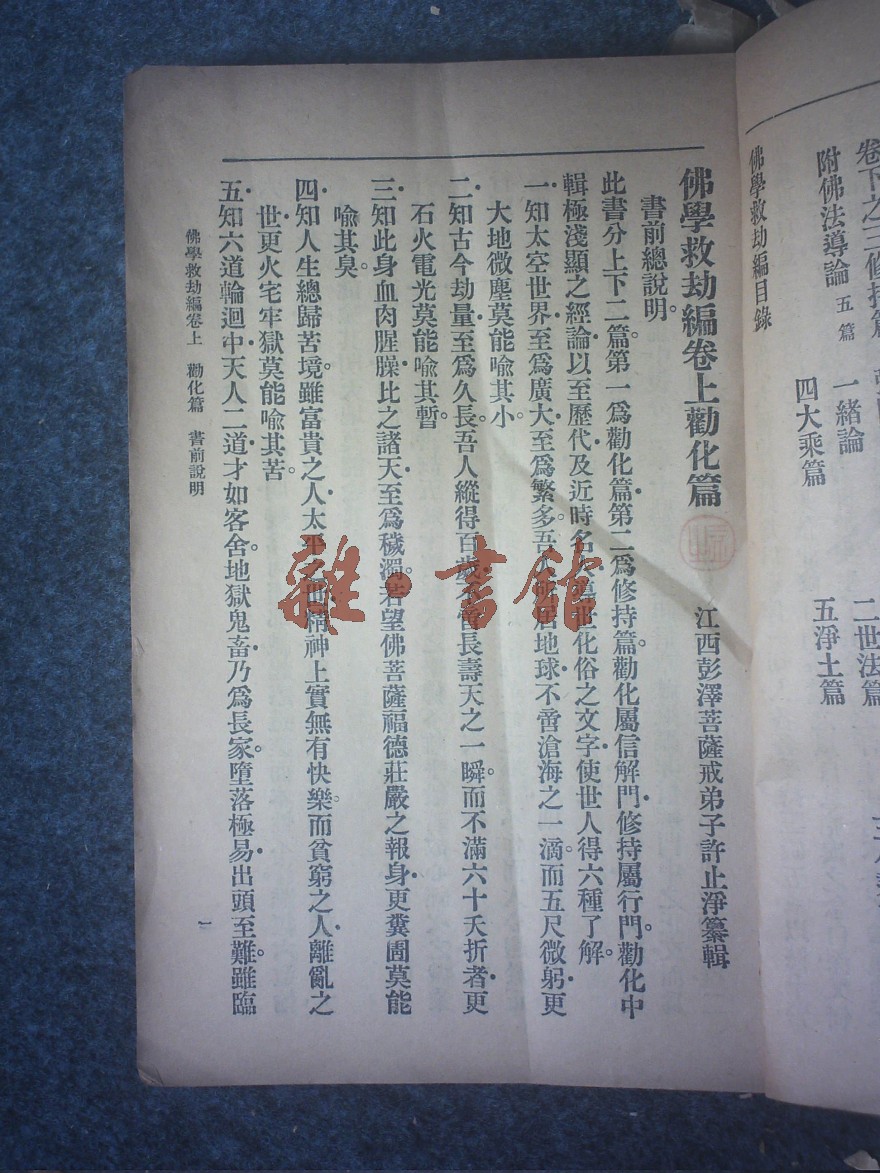 卷下之三修持篇
附佛法導論 五篇
一緒論
二世法篇
四大乘篇
五淨土篇
佛學救劫編目錄
佛學救劫編卷上勸化篇
江西彭澤菩薩戒弟子許止淨纂輯
書前總說明。
此書分上下二篇。第一爲勸化篇・第二爲修持篇。勸化屬信解門・修持屬行門。勸化中
輯極淺顯之經論・以至歷代及近時名人導世化俗之文字・使世人得六種了解。
一・知太空世界・至爲廣大・至爲繁多。吾人所居地球・不啻滄海之一滴。而五尺微躬・更
大地微塵莫能喩其小。
二・知古今劫量・至爲久長。吾人縱得百歲・不啻長壽天之一瞬。而不滿六十夭折者・更
石火電光莫能喩其暫。
三・知此身血肉腥臊・比之諸天・至爲穢濁。若望佛菩薩福德莊嚴之報身・更糞圊莫能
喩其臭。
四・知人生總歸苦境。雖富貴之人・太平之世・精神上實無有快樂。而貧窮之人・離亂之
世・更火宅牢獄莫能喩其苦。
五・知六道輪迴中・天人二道・才如客舍。地獄鬼畜・乃爲長家。墮落極易・出頭至難。雖臨
佛學救劫編卷上 勸化篇 書前說明
一
雜・書館